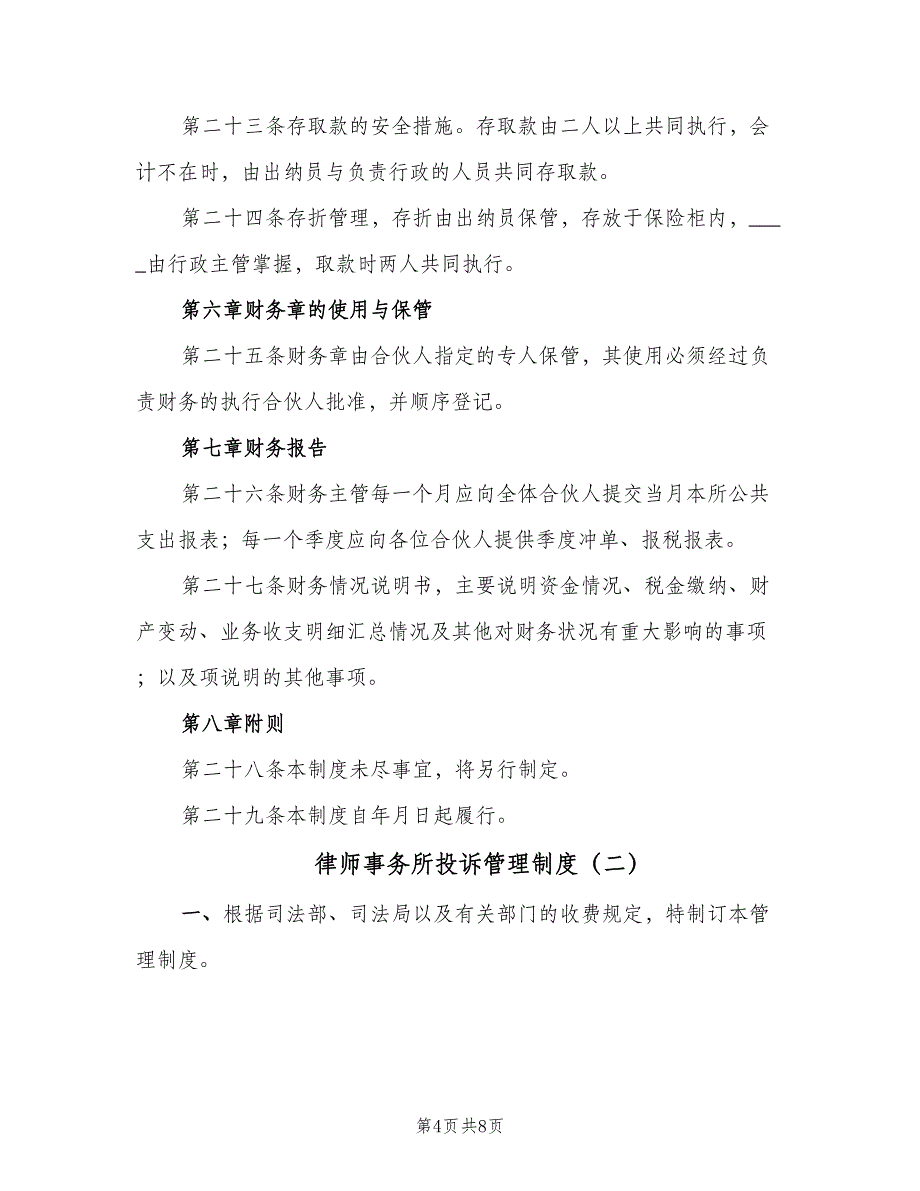 第二十三条存取款的安全措施。存取款由二人以上共同执行，会
计不在时，由出纳员与负责行政的人员共同存取款。
第二十四条存折管理，存折由出纳员保管，存放于保险柜内，___
_由行政主管掌握，取款时两人共同执行。
第六章财务章的使用与保管
第二十五条财务章由合伙人指定的专人保管，其使用必须经过负
责财务的执行合伙人批准，并顺序登记。
第七章财务报告
第二十六条财务主管每一个月应向全体合伙人提交当月本所公共
支出报表；每一个季度应向各位合伙人提供季度冲单、报税报表。
第二十七条财务情况说明书，主要说明资金情况、税金缴纳、财
产变动、业务收支明细汇总情况及其他对财务状况有重大影响的事项
；以及项说明的其他事项。
第八章附则
第二十八条本制度未尽事宜，将另行制定。
第二十九条本制度自年月日起履行。
律师事务所投诉管理制度（二）
一、根据司法部、司法局以及有关部门的收费规定，特制订本管
理制度。
第4页共8页